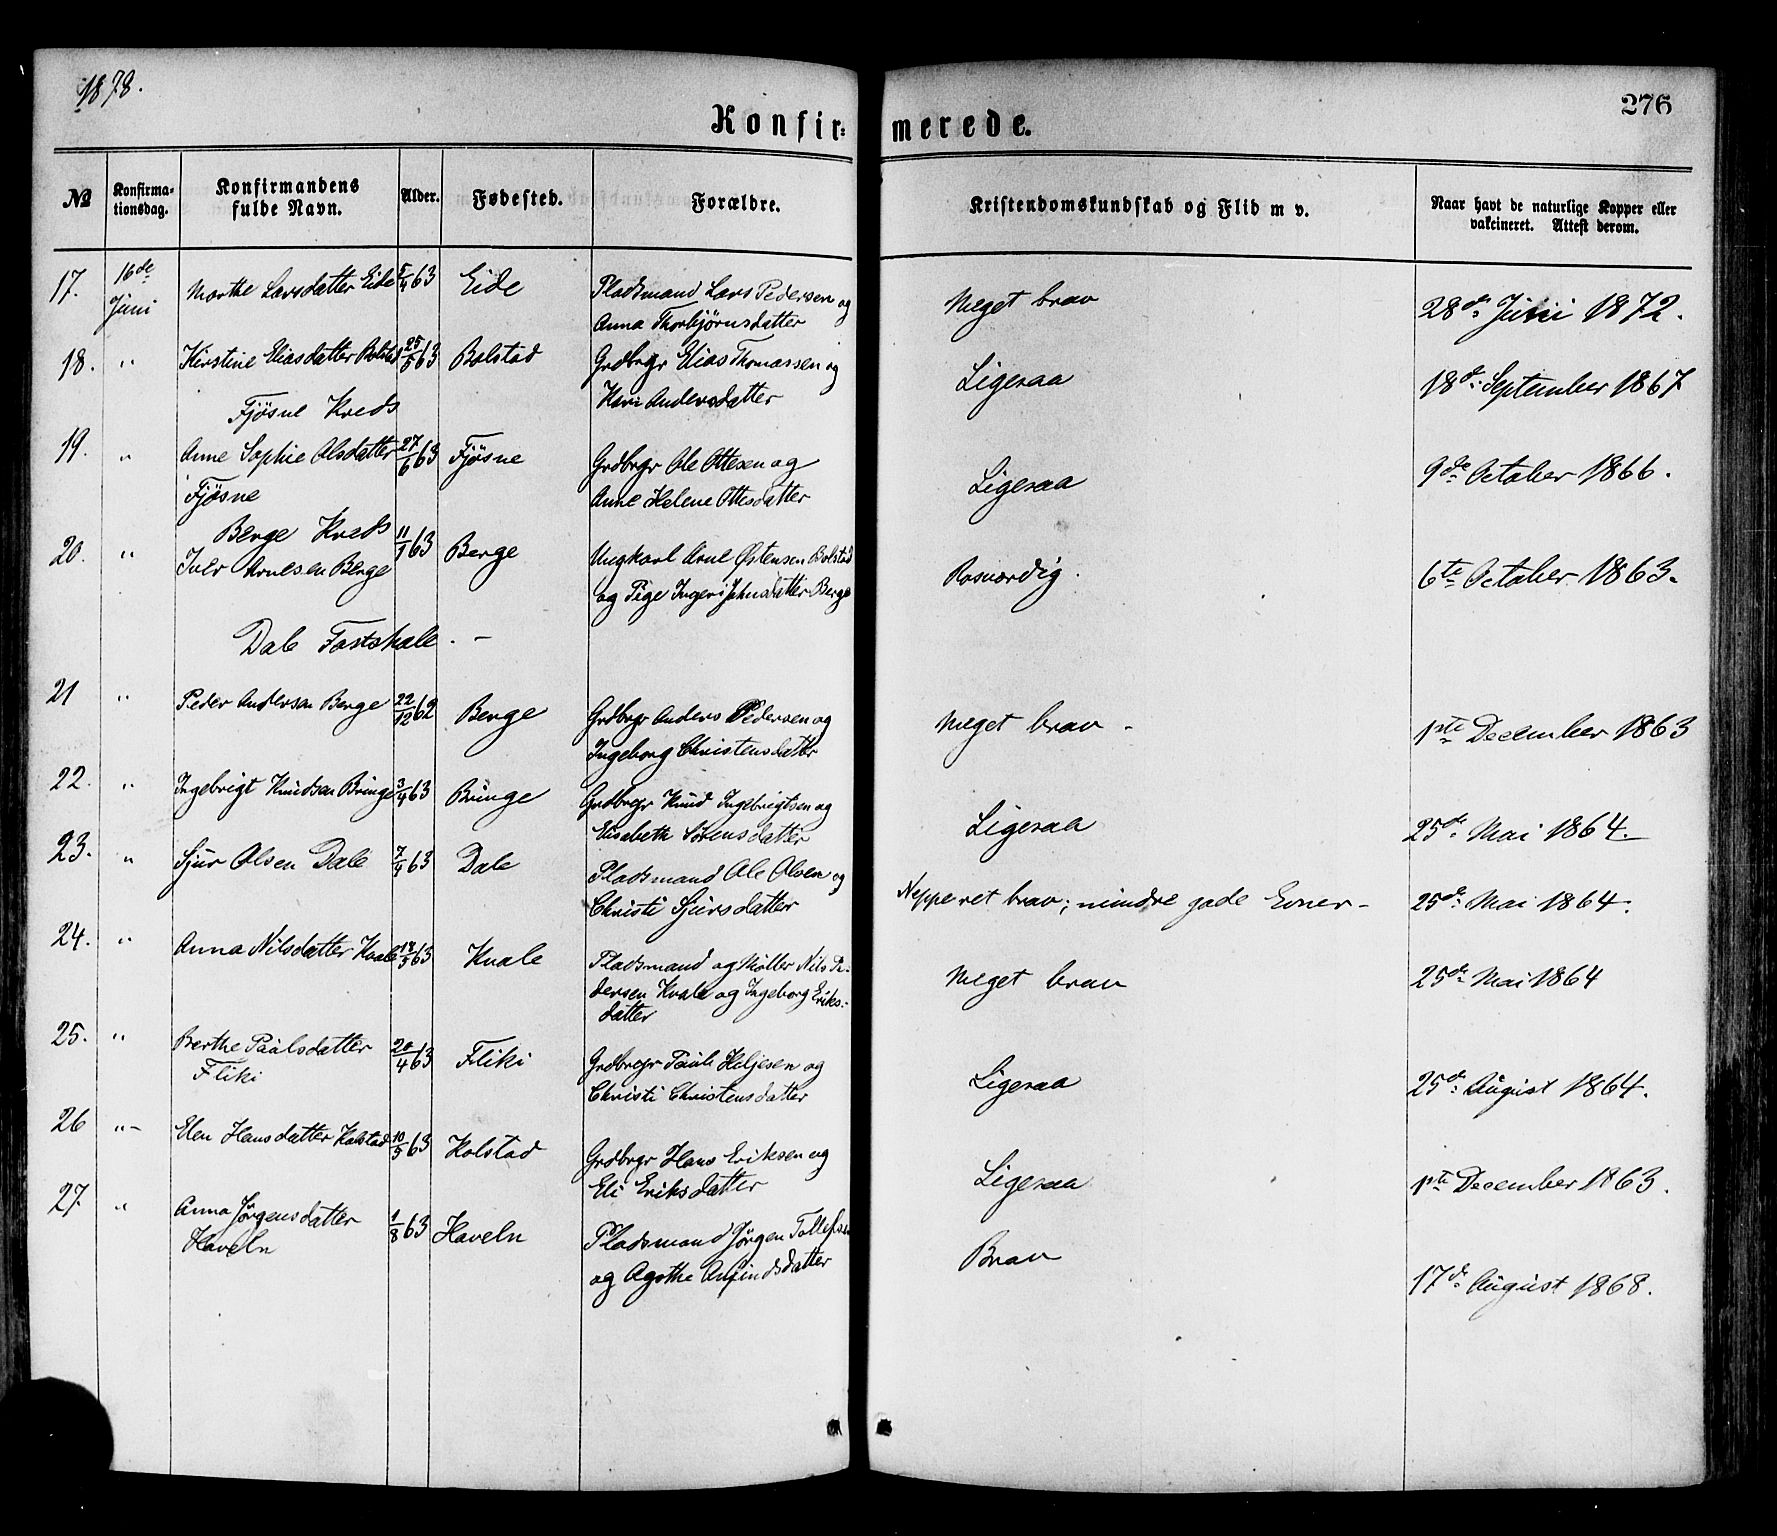 1878.
276
Konfir= merede.
No Konfirma-tionsdag. Konfirmandens fulde Navn. Alder. Fødested. Forældre. Kristendomskundskab og Flid m v. Naar havt de naturlige Kopper eller vakcineret. Attest derom.
17. 16de Juni Marthe Larsdatter Eide 5/4 63 Eide Pladsmand Lars Pedersen og Meget brav 28de Juni 1872.
Anna Thorbjørnsdatter
18. " Kirstine Eliasdatter Bolstad 25/5 63 Bolstad Grdbrgr Elias Thomassen og Ligesaa 18de September 1867
Kari Andersdatter
Fjøsne Kreds
19. " Anne Sophie Olsdatter 27/6 63 Fjøsne Grdbrgr Ole Ottesen og Ligesaa 9de October 1866.
Fjøsne Anne Helene Ottesdatter
Berge Kreds
20. " Iver Arnesen Berge 11/1 63 Berge Ungkarl Arne Østensen Bolstad Rosværdig. 6te October 1863.
og Pige Ingeri Johnsdatter Berge
Dale Fastskole. -
21 " Peder Andersen Berge 22/12 62 Berge Grdbrgr Anders Pedersen og Meget brav - 1ste December 1863
Ingeborg Christensdatter
22. " Ingebrigt Knudsen Bringe 3/4 63 Bringe Grdbrgr Knud Ingebrigtsen og Ligesaa 25de Mai 1864.
Elisabeth Sørensdatter
23. " Sjur Olsen Dale 7/4 63 Dale Pladsmand Ole Olsen og Neppe ret brav; mindre gode Evner - 25de Mai 1864.
Christi Sjursdatter
24. " Anna Nilsdatter Kvale 18/5 63 Kvale Pladsmand og Møller Nils Pe- Meget brav 25de Mai 1864
dersen Kvale og Ingeborg Eriks-
datter
25. " Berthe Paalsdatter 20/4 63 Fliki Grdbrgr Paul Heljesen og Ligesaa 25de August 1864.
Fliki Christi Christensdatter
26 " - Elen Hansdatter Kolstad 10/5 63 Kolstad Grdbrgr Hans Eriksen og Ligesaa 1ste December 1863.
Eli Eriksdatter
27. " Anna Jørgensdatter 1/8 63 Haveln Pladsmand Jørgen Tollefsen Brav 17de August 1868.
Haveln og Agothe Anfindsdatter